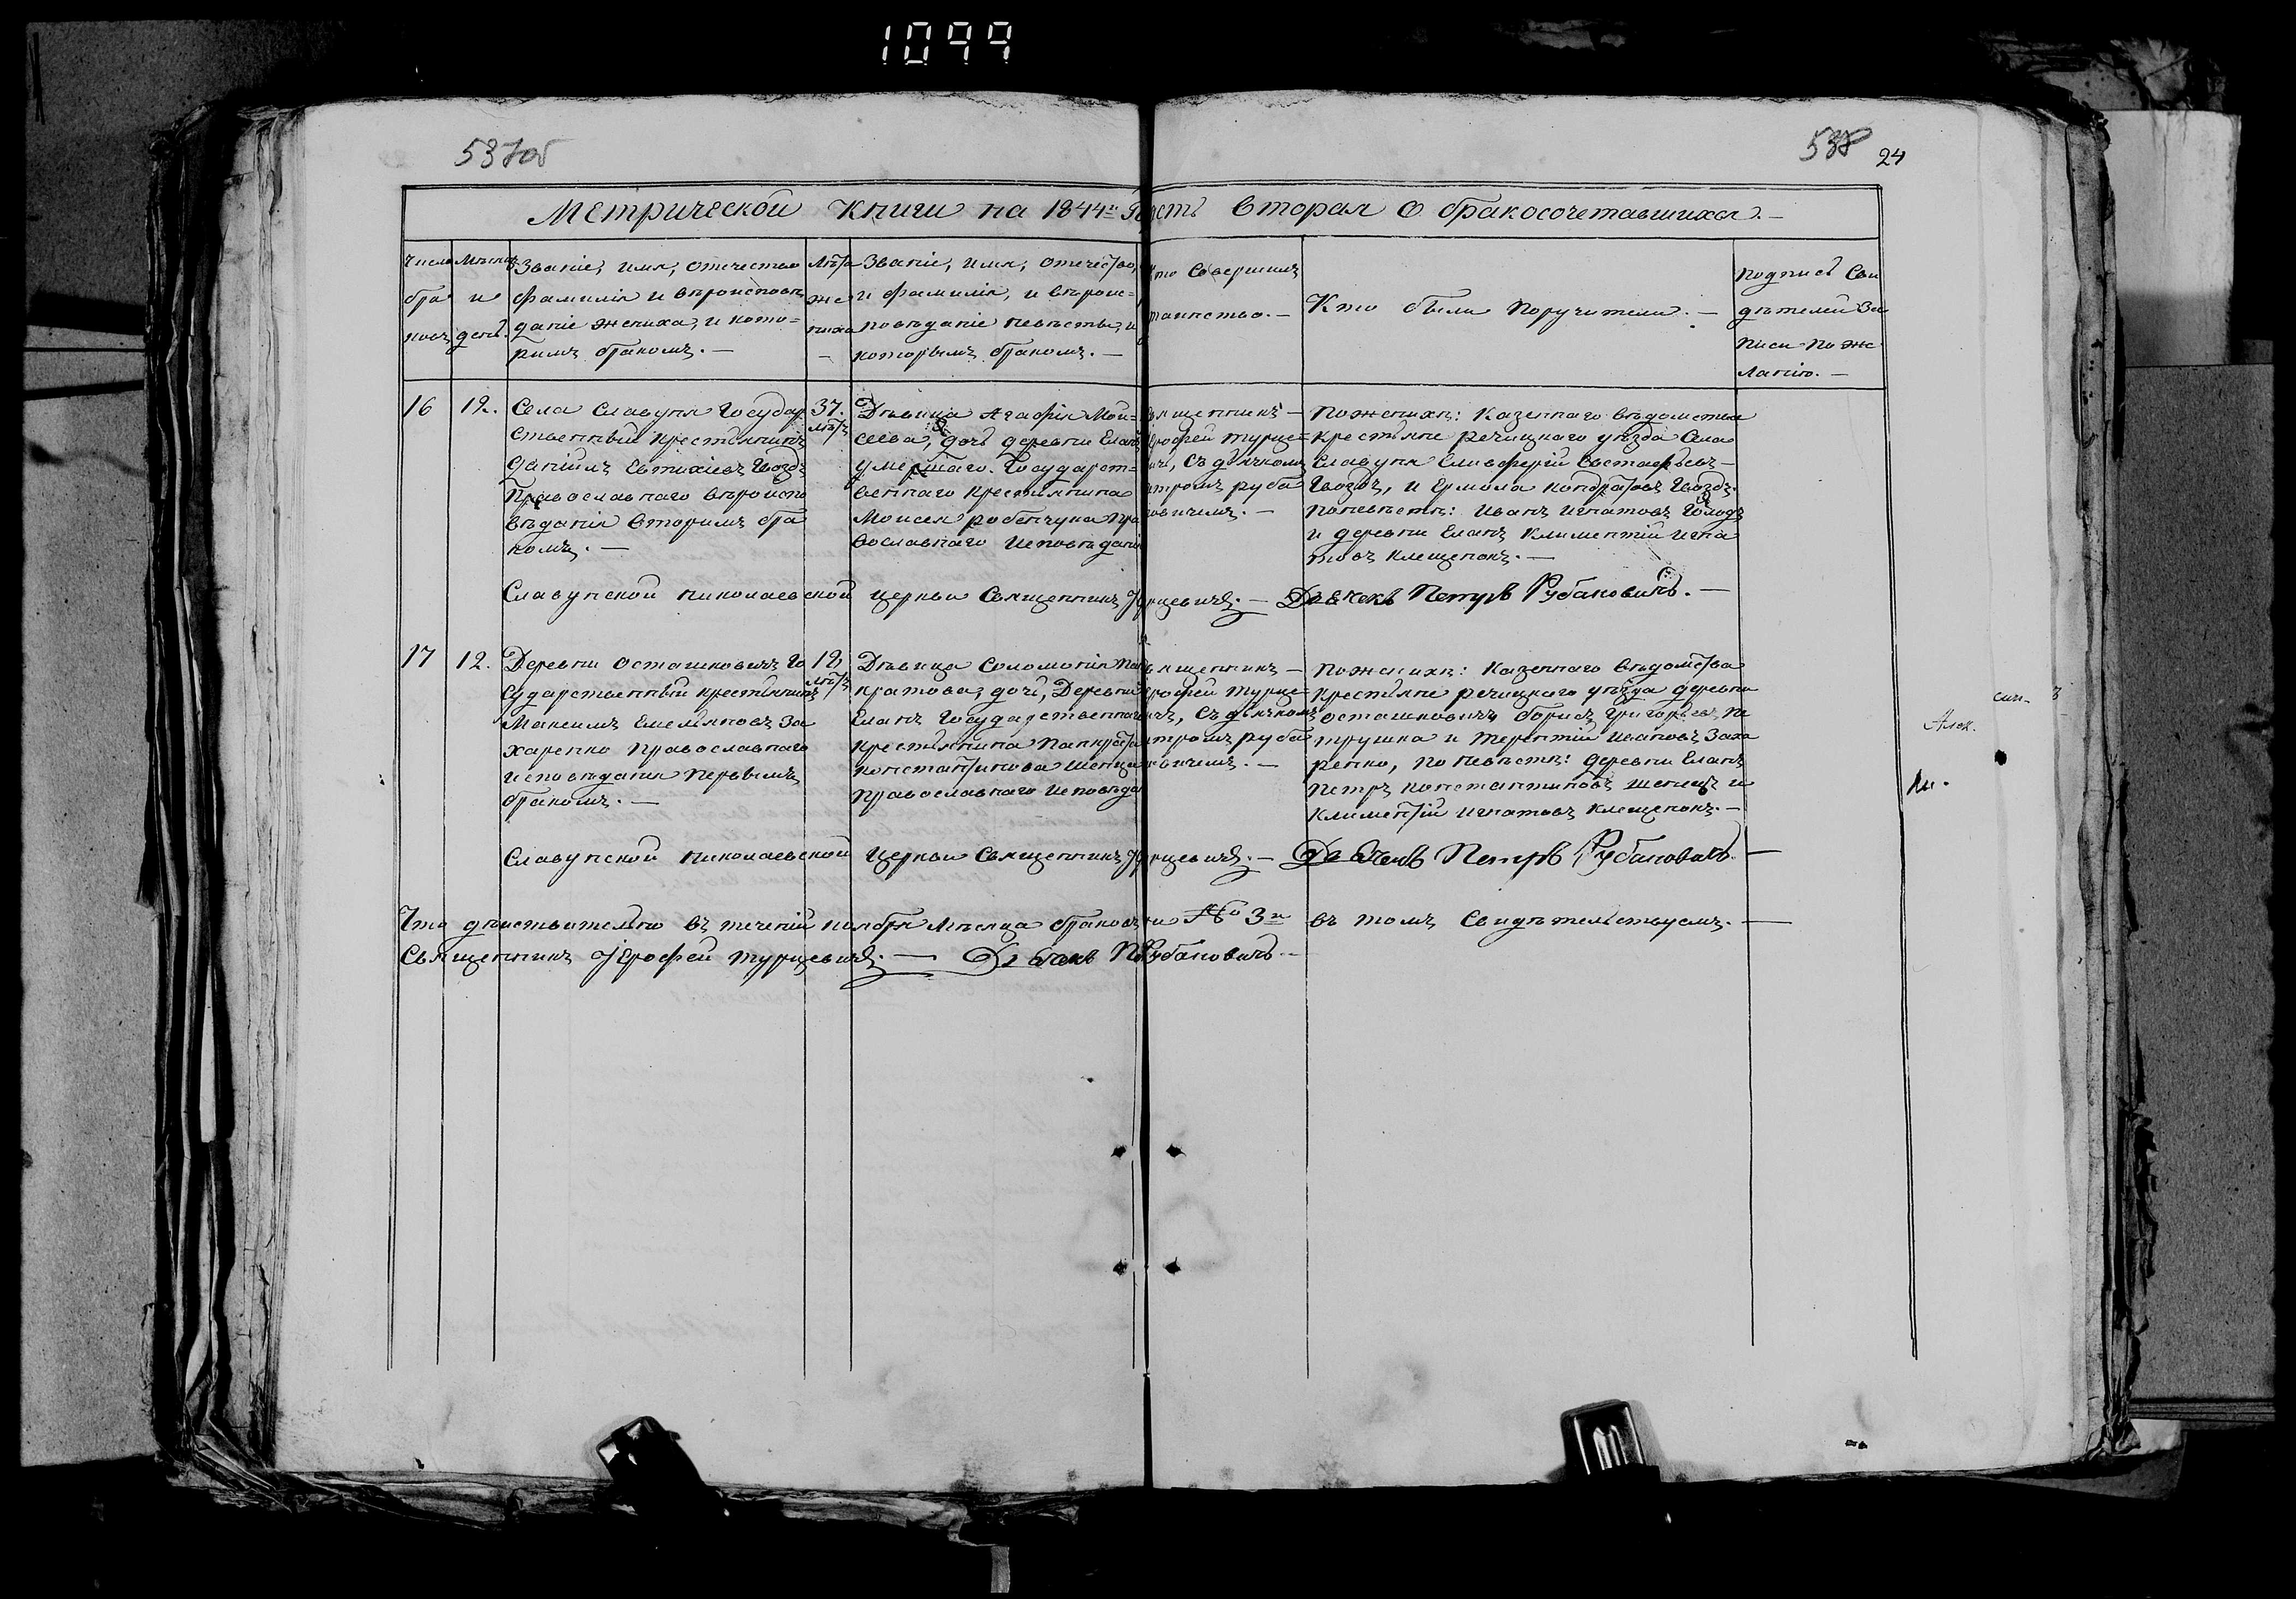 1099
537об
538 24
Метрической Книги на 1844й Часть вторая о бракосочетавшихся. —
Число браковъ
Мѣсяцъ и день.
Званіе, имя, отечество
фамилія и вѣроисповѣ
даніе жениха, и кото=
римъ бракомъ. —
Лѣта жениха —
Званіе, имя, отечество,
и фамилія, и вѣроис=
повѣданіе невѣсты, и
которымъ бракомъ. —
Кто совершилъ
таинство. —
Кто были поручители. —
Подписъ сви
дѣтелей за
писи по же
ланію. —
16
12.
Села Славупя Государ
ственный крестянинъ
Даніилъ Евтихіевъ Гвоздъ
Православнаго вѣроиспо
вѣданія вторимъ бра
комъ. —
37.
лѣтъ
Дѣвица Агафія Мои=
сеева, дочь деревни Еланъ
умершаго Государст=
веннаго крестянина
Моисея Робенчука пра
вославнаго исповѣданія
Священникъ —
Ерофей Турце=
вичъ, съ дячкомъ
Петромъ Руба
новичемъ. —
По женихѣ: Казеннаго вѣдомства
крестяне речицкаго уѣзда села
Славупя Елисферій Евстафьевъ —
Гвоздъ, и Ермола Кондратовъ Гвоздъ.
По невѣстѣ: Иванъ Игнатовъ Голодъ
и деревни Еланъ Климентій Игна
товъ Клещенокъ. —
Славупской Николаевской церкви Священникъ Турцевичъ. — Дьячекъ Петръ Рубановичъ. —
17
12.
Деревни Осташковичъ Го
сударственный крестянинъ
Максимъ Емеляновъ За
харенко православнаго
исповѣданія первымъ
бракомъ. —
19
лѣтъ
Дѣвица Соломонія Пан
кратова, дочь, деревни
Еланъ Государственнаго
крестянина Панкрата
Константинова Шепца
православнаго исповѣда
Священникъ —
Ерофей Турце=
вичъ, съ дячкомъ
Петромъ Руба
новичемъ. —
По женихѣ: Казеннаго вѣдомства
крестяне речицкаго уѣзда деревни
Осташковичъ Борисъ Григорьевъ Пе
трушка и Терентій Ивановъ Заха
ренко, по невѣстѣ: деревни Еланъ
Петръ Константиновъ Шепецъ и
Климентій Игнатовъ Клещенокъ. —
Славупской Николаевской церкви Священникъ Турцевичъ. — Дьячекъ Петръ Рубановичъ. —
Что дѣйствительно въ теченіи ноября мѣсяца браковъ № 3й въ томъ свидѣтельствуемъ. —
Священникъ Іерофей Турцевичъ. — Дьячекъ П Рубановичъ. —
Алек.